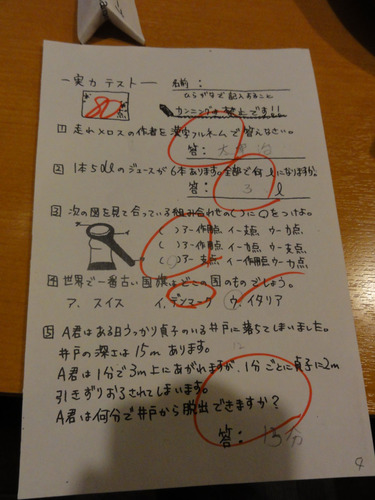 ―実力テスト―
名前:
80点
ひらがなで記入すること
カンニングは禁止です!!
① 走れメロスの作者を漢字フルネームで答えなさい。
答: 太宰 治
② 1本5dlのジュースが6本あります。全部で何lになりますか。
答: 3 l
③ 次の図を見て合っている組み合わせの( )に○をつけよ。
( )ア-作用点 イ-支点 ウ-力点
( )ア-作用点 イ-力点 ウ-支点
(○)ア-支点 イ-作用点 ウ-力点
④ 世界で一番古い国旗はどこの国のものでしょう。
ア. スイス イ. デンマーク ウ. イタリア
⑤ A君はある日うっかり貞子のいる井戸に落ちてしまいました。
井戸の深さは15mあります。
A君は1分で3m上にあがれますが、1分ごとに貞子に2m
引きずりおろされてしまいます。
A君は何分で井戸から脱出できますか?
答: 13分